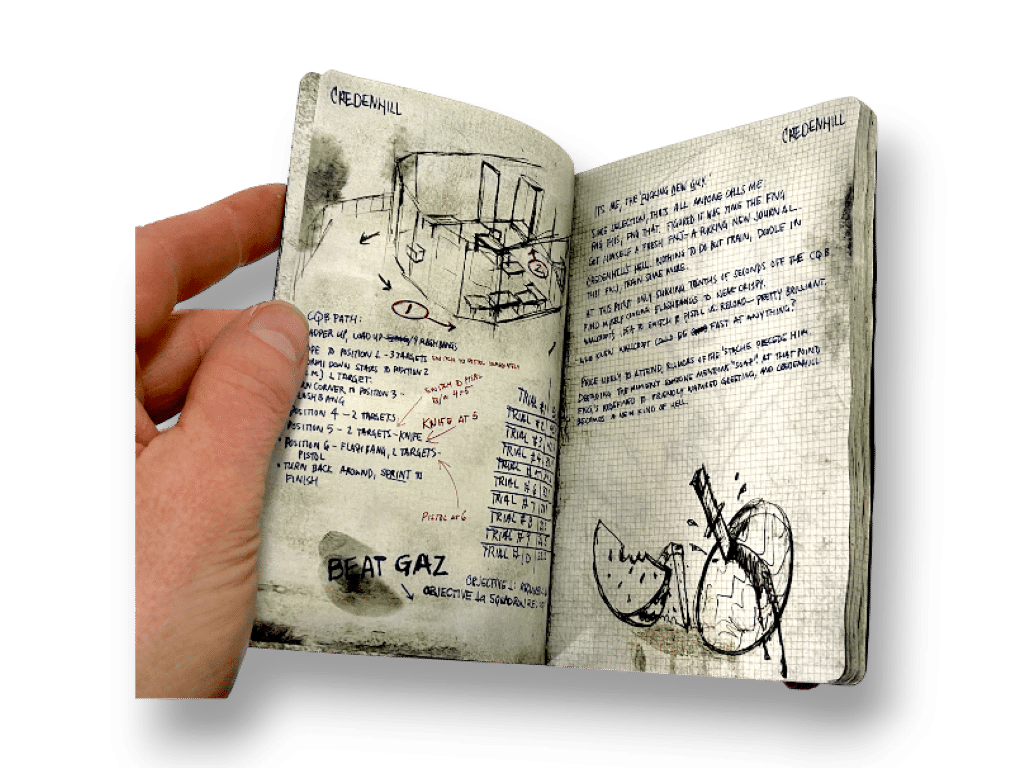 CREDENHILL
2
1
CQB PATH:
UP, LOAD UP FLASHBANGS
TO POSITION 1 - 3 TARGETS SWITCH TO PISTOL
DOWN STAIRS TO POSITION 2
1 TARGET
CORNER TO POSITION 3 -
SWITCH TO
B/W 4+5
POSITION 4 - 2 TARGETS
KNIFE AT 5
POSITION 5 - 2 TARGETS - KNIFE
• POSITION 6 - FLASHBANG, 2 TARGETS -
PISTOL
• TURN BACK AROUND, SPRINT TO
FINISH
PISTOL AT 6
TRIAL #1
TRIAL #2
TRIAL #3
TRIAL #4
TRIAL #5
TRIAL #6
TRIAL #7
TRIAL #8
TRIAL #9
TRIAL #10
BEAT GAZ
OBJECTIVE 1:
OBJECTIVE 1a SQUADRON
CREDENHILL
IT'S ME, THE 'FUCKING NEW GUY'.
SINCE SELECTION, THAT'S ALL ANYONE CALLS ME
FNG THIS, FNG THAT. FIGURED IT WAS TIME THE FNG
GOT HIMSELF A FRESH FNJ - A FUCKING NEW JOURNAL.
CREDENHILL'S HELL. NOTHING TO DO BUT TRAIN, DOODLE IN
THIS FNJ, TRAIN SOME MORE.
AT THIS POINT ONLY SHAVING TENTHS OF SECONDS OFF THE CQB
FIND MYSELF COOKING FLASHBANGS TO NEAR CRISPY.
WALLCROFT'S IDEA TO SWITCH TO PISTOL VS. RELOAD - PRETTY BRILLIANT.
WHO KNEW WALLCROFT COULD BE FAST AT ANYTHING?
PRICE LIKELY TO ATTEND, RUMORS OF THE 'STACHE PRECEDE HIM.
DREADING THE MOMENT SOMEONE MENTIONS "SOAP". AT THAT POINT
FNG'S REDEFINED TO FRIENDLY NATURED GREETING, AND CREDENHILL
BECOMES A NEW KIND OF HELL.